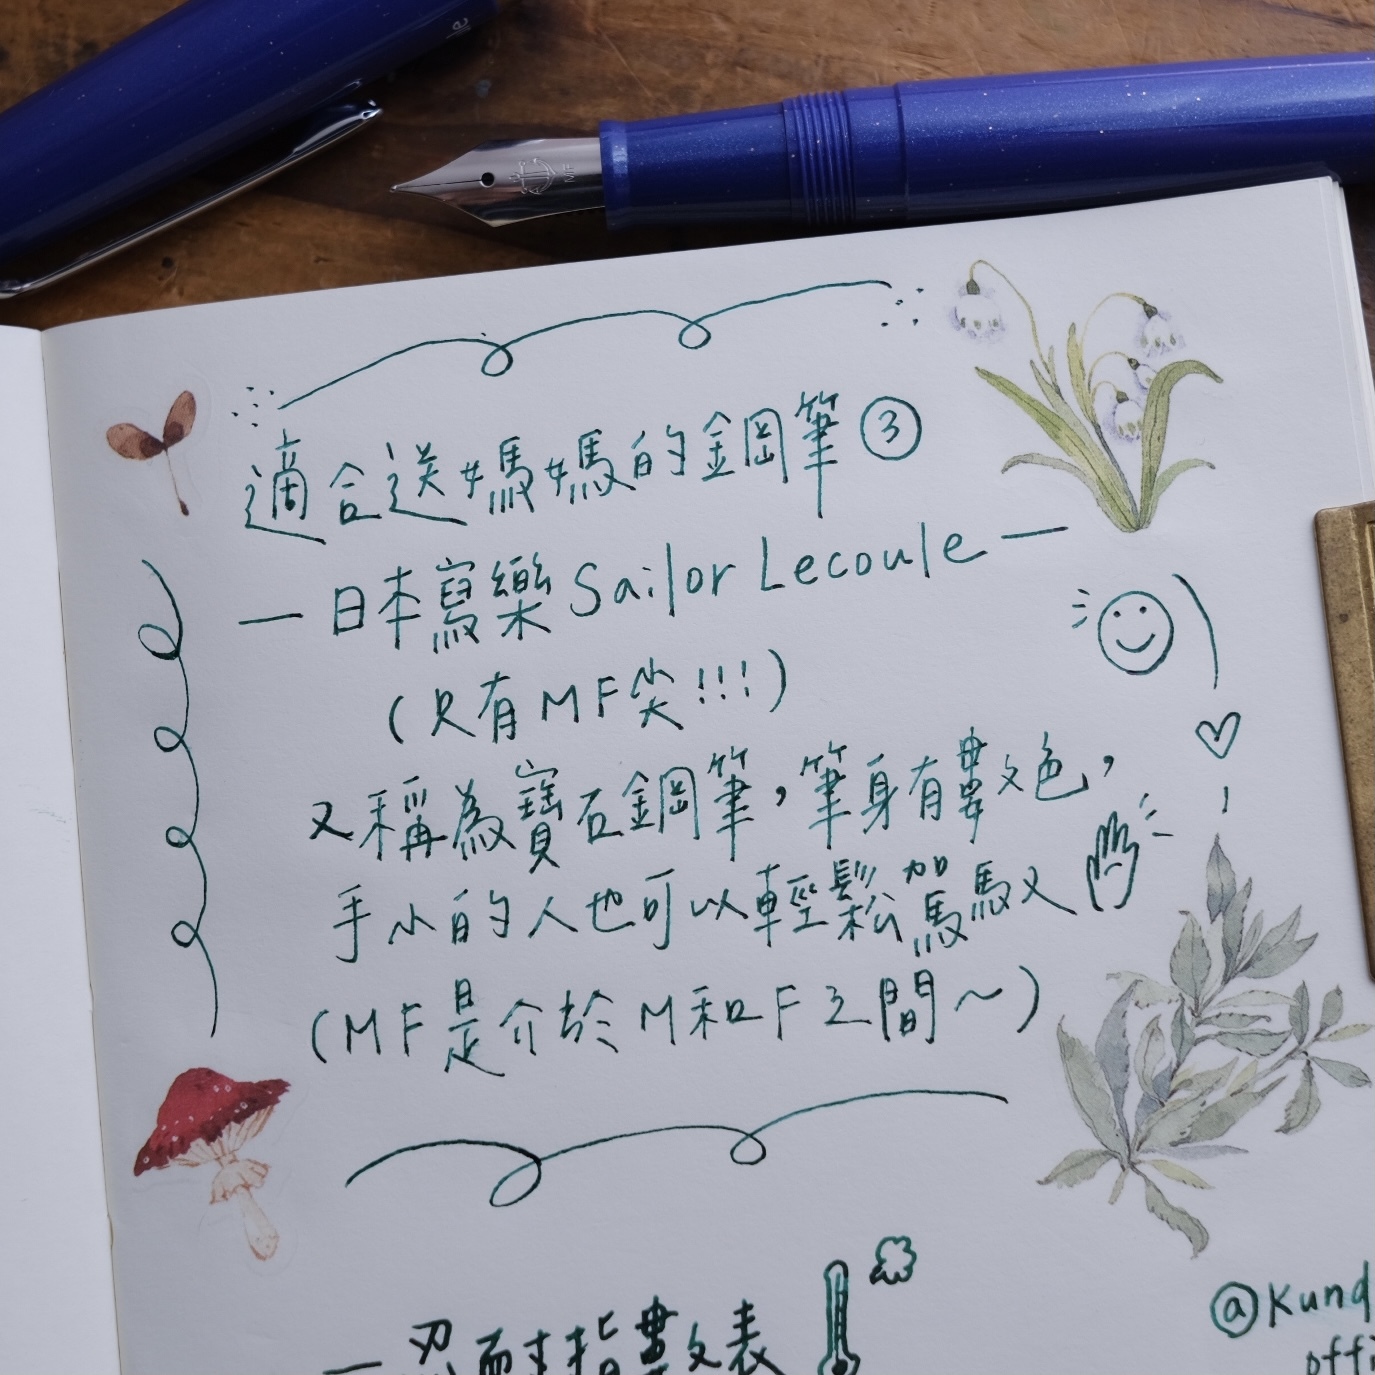 適合送媽媽的鋼筆③
—日本寫樂 Sailor Lecoule—
(只有MF尖!!!)
又稱為寶石鋼筆，筆身有數色，
手小的人也可以輕鬆駕馭
(MF是介於M和F之間～)
—忍耐指數表
@Kund
offi
MF